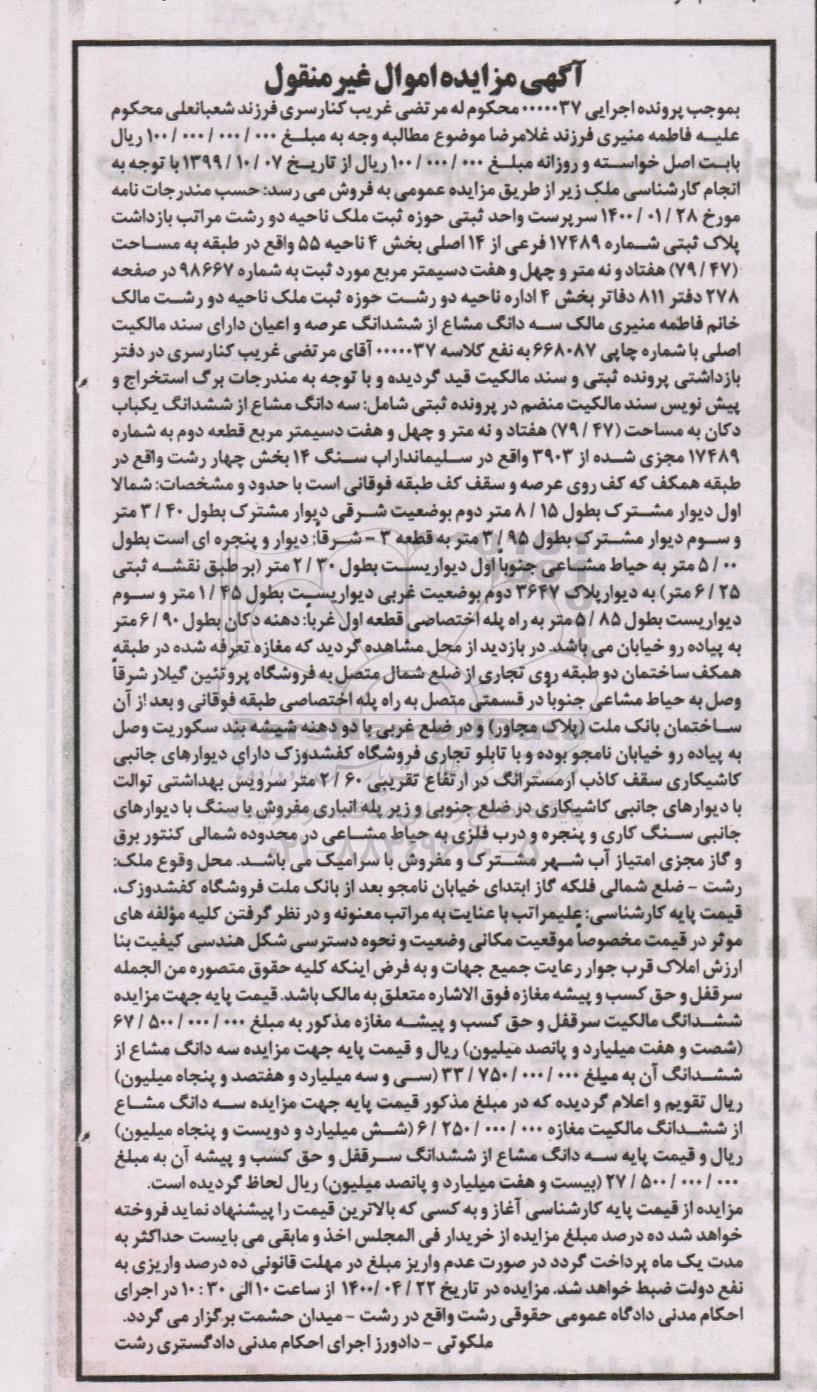 آگهی مزایده اموال غیر منقول
بموجب پرونده اجرایی ۰۰۰۰۰۳۷ محکوم له مرتضی غریب کنارسری فرزند شعبانعلی محکوم
علیه فاطمه منیری فرزند غلامرضا موضوع مطالبه وجه به مبلغ ۱۰۰/۰۰۰/۰۰۰/۰۰۰ ریال
بابت اصل خواسته و روزانه مبلغ ۱۰۰/۰۰۰/۰۰۰ ریال از تاریخ ۱۳۹۹/۱۰/۰۷ با توجه به
انجام کارشناسی ملک زیر از طریق مزایده عمومی به فروش می رسد: حسب مندرجات نامه
مورخ ۱۴۰۰/۰۱/۲۸ سرپرست واحد ثبتی حوزه ثبت ملک ناحیه دو رشت مراتب بازداشت
پلاک ثبتی شماره ۱۷۴۸۹ فرعی از ۱۴ اصلی بخش ۴ ناحیه ۵۵ واقع در طبقه به مساحت
(۷۹/۴۷) هفتاد و نه متر و چهل و هفت دسیمتر مربع مورد ثبت به شماره ۹۸۶۶۷ در صفحه
۲۷۸ دفتر ۸۱۱ دفاتر بخش ۴ اداره ناحیه دو رشت حوزه ثبت ملک ناحیه دو رشت مالک
خانم فاطمه منیری مالک سه دانگ مشاع از ششدانگ عرصه و اعیان دارای سند مالکیت
اصلی با شماره چاپی ۶۶۸۰۸۷ به نفع کلاسه ۰۰۰۰۰۳۷ آقای مرتضی غریب کنارسری در دفتر
بازداشتی پرونده ثبتی و سند مالکیت قید گردیده و با توجه به مندرجات برگ استخراج و
پیش نویس سند مالکیت منضم در پرونده ثبتی شامل: سه دانگ مشاع از ششدانگ یکباب
دکان به مساحت (۷۹/۴۷) هفتاد و نه متر و چهل و هفت دسیمتر مربع قطعه دوم به شماره
۱۷۴۸۹ مجزی شده از ۳۹۰۳ واقع در سلیمانداراب سنگ ۱۴ بخش چهار رشت واقع در
طبقه همکف که کف روی عرصه و سقف کف طبقه فوقانی است با حدود و مشخصات: شمالا
اول دیوار مشترک بطول ۸/۱۵ متر دوم بوضعیت شرقی دیوار مشترک بطول ۳/۴۰ متر
و سوم دیوار مشترک بطول ۳/۹۵ متر به قطعه ۳ – شرقاً: دیوار و پنجره ای است بطول
۵/۰۰ متر به حیاط مشاعی جنوباً اول دیواریست بطول ۲/۳۰ متر (بر طبق نقشه ثبتی
۶/۲۵ متر) به دیوار پلاک ۳۶۴۷ دوم بوضعیت غربی دیواریست بطول ۱/۴۵ متر و سوم
دیواریست بطول ۵/۸۵ متر به راه پله اختصاصی قطعه اول غرباً: دهنه دکان بطول ۶/۹۰ متر
به پیاده رو خیابان می باشد. در بازدید از محل مشاهده گردید که مغازه تعرفه شده در طبقه
همکف ساختمان دو طبقه روی تجاری از ضلع شمال متصل به فروشگاه پروتئین گیلار شرقاً
وصل به حیاط مشاعی جنوباً در قسمتی متصل به راه پله اختصاصی طبقه فوقانی و بعد از آن
ساختمان بانک ملت (پلاک مجاور) و در ضلع غربی با دو دهنه شیشه بند سکوریت وصل
به پیاده رو خیابان نامجو بوده و با تابلو تجاری فروشگاه کفشدوزک دارای دیوارهای جانبی
کاشیکاری سقف کاذب ارمسترانگ در ارتفاع تقریبی ۲/۶۰ متر سرویس بهداشتی توالت
با دیوارهای جانبی کاشیکاری در ضلع جنوبی و زیر پله انباری مفروش با سنگ با دیوارهای
جانبی سنگ کاری و پنجره و درب فلزی به حیاط مشاعی در محدوده شمالی کنتور برق
و گاز مجزی امتیاز آب شهر مشترک و مفروش با سرامیک می باشد. محل وقوع ملک:
رشت – ضلع شمالی فلکه گاز ابتدای خیابان نامجو بعد از بانک ملت فروشگاه کفشدوزک.
قیمت پایه کارشناسی: علیمراتب با عنایت به مراتب معنونه و در نظر گرفتن کلیه مؤلفه های
موثر در قیمت مخصوصاً موقعیت مکانی وضعیت و نحوه دسترسی شکل هندسی کیفیت بنا
ارزش املاک قرب جوار رعایت جمیع جهات و به فرض اینکه کلیه حقوق متصوره من الجمله
سرقفل و حق کسب و پیشه مغازه فوق الاشاره متعلق به مالک باشد. قیمت پایه جهت مزایده
ششدانگ مالکیت سرقفل و حق کسب و پیشه مغازه مذکور به مبلغ ۶۷/۵۰۰/۰۰۰/۰۰۰
(شصت و هفت میلیارد و پانصد میلیون) ریال و قیمت پایه جهت مزایده سه دانگ مشاع از
ششدانگ آن به مبلغ ۳۳/۷۵۰/۰۰۰/۰۰۰ (سی و سه میلیارد و هفتصد و پنجاه میلیون)
ریال تقویم و اعلام گردیده که در مبلغ مذکور قیمت پایه جهت مزایده سه دانگ مشاع
از ششدانگ مالکیت مغازه ۶/۲۵۰/۰۰۰/۰۰۰ (شش میلیارد و دویست و پنجاه میلیون)
ریال و قیمت پایه سه دانگ مشاع از ششدانگ سرقفل و حق کسب و پیشه آن به مبلغ
۲۷/۵۰۰/۰۰۰/۰۰۰ (بیست و هفت میلیارد و پانصد میلیون) ریال لحاظ گردیده است.
مزایده از قیمت پایه کارشناسی آغاز و به کسی که بالاترین قیمت را پیشنهاد نماید فروخته
خواهد شد ده درصد مبلغ مزایده از خریدار فی المجلس اخذ و مابقی می بایست حداکثر به
مدت یک ماه پرداخت گردد در صورت عدم واریز مبلغ در مهلت قانونی ده درصد واریزی به
نفع دولت ضبط خواهد شد. مزایده در تاریخ ۱۴۰۰/۰۴/۲۲ از ساعت ۱۰ الی ۱۰:۳۰ در اجرای
احکام مدنی دادگاه عمومی حقوقی رشت واقع در رشت – میدان حشمت برگزار می گردد.
ملکوتی – دادورز اجرای احکام مدنی دادگستری رشت